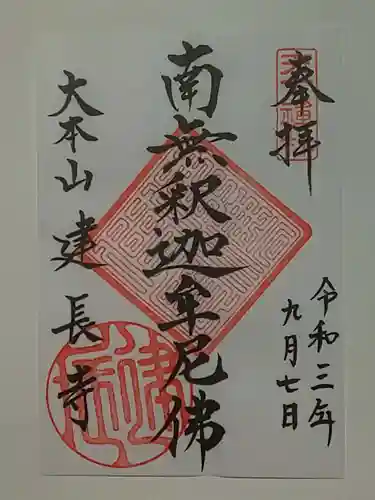 奉拝
令和三年
九月七日
南無釈迦牟尼佛
大本山建長寺